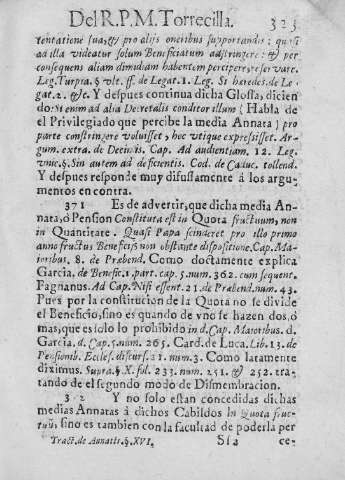 Del R.P.M. Torrecilla. 323
tentatione sua, & pro alijs oneribus supportandis: quasi
ad illa videatur solum Beneficiatum adstringere: & per
consequens aliam dimidiam habentem percipere, reservare.
Leg. Turpia. § vlt. ff. de Legat. 1. Leg. Si heredes. de Le-
gat. 2. &c. Y despues continua dicha Glossa, dicien
do: Si enim ad alia Decretalis conditor illum (Habla de
el Privilegiado que percibe la media Annata) pro
parte constringere voluisset, hoc vtique expressisset. Ar-
gum. extra. de Decimis. Cap. Ad audientiam. 12. Leg.
vnic. §. Sin autem ad deficientis. Cod. de Caduc. tollend.
Y despues responde muy difussamente à los argu-
mentos en contra.
371 Es de advertir, que dicha media An
nata, ó Pension Constituta est in Quota fructuum, non
in Quantitate. Quasi Papa scinderet pro illo primo
anno fructus Beneficij non obstante dispositione. Cap. Ma-
ioribus, 8. de Præbend. Como doctamente explica
Garcia, de Benefic. 1. part. cap. 5. num. 362. cum sequent.
Fagnanus. Ad Cap. Nisi essent. 21. de Præbend. num. 43.
Pues por la constitucion de la Quota no se divide
el Beneficio, sino es quando de vno se hazen dos, ó
mas, que es solo lo prohibido in d. Cap. Maioribus. d.
Garcia. d. Cap. 5. num. 265. Card. de Luca. Lib. 13. de
Pensionib. Eccles. discurs. 21. num. 3. Como latamente
diximus. Supra. §. X. fol. 233. num. 251. & 252. tra-
tando de el segundo modo de Dismembracion.
372 Y no solo estan concedidas dichas
medias Annatas à dichos Cabildos In Quota fruc-
tuũ, sino es tambien con la facultad de poderla per
Tract. de Annatis. §. XVI. Ss2 ce-